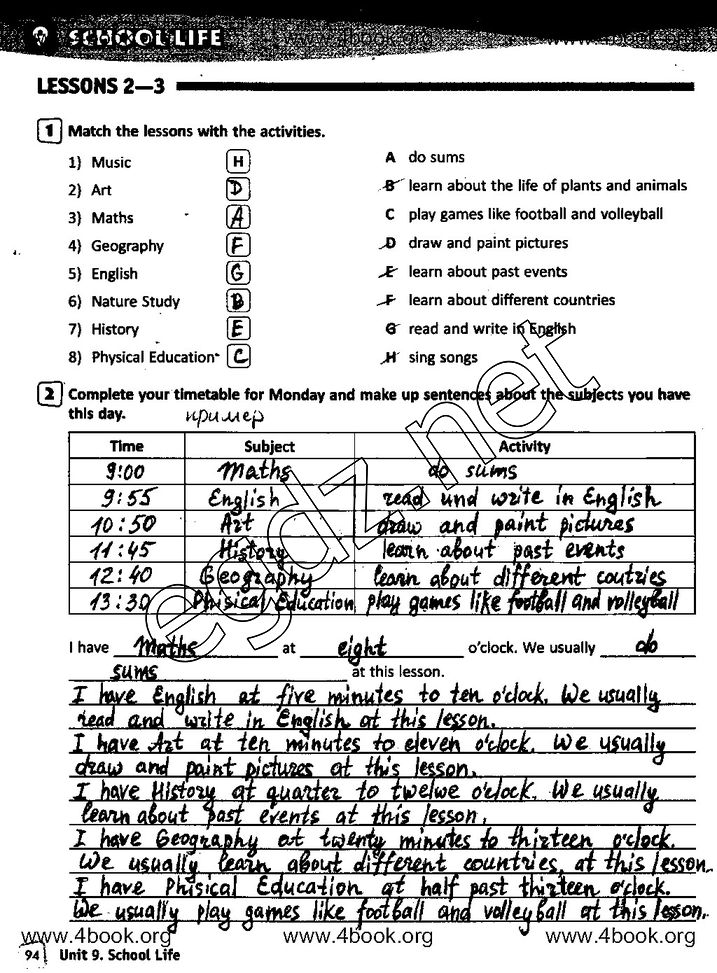 www.4book.org www.4book.org
9 SCHOOL LIFE
LESSONS 2—3
1 Match the lessons with the activities.
1) Music H A do sums
2) Art D B learn about the life of plants and animals
3) Maths A C play games like football and volleyball
4) Geography F D draw and paint pictures
5) English G E learn about past events
6) Nature Study B F learn about different countries
7) History E G read and write in English
8) Physical Education C H sing songs
2 Complete your timetable for Monday and make up sentences about the subjects you have
this day. пример
Time Subject Activity
9:00 Maths do sums
9:55 English read und write in English
10:50 Art draw and paint pictures
11:45 History learn about past events
12:40 Geography learn about different coutries
13:30 Phisical Education play games like football and volleyball
I have Maths at eight o'clock. We usually do
sums at this lesson.
I have English at five minutes to ten o'clock. We usually
read and write in English at this lesson.
I have Art at ten minutes to eleven o'clock. We usually
draw and paint pictures at this lesson.
I have History at quarter to twelwe o'clock. We usually
learn about past events at this lesson.
I have Geography at twenty minutes to thirteen o'clock.
We usually learn about different countries at this lesson.
I have Phisical Education at half past thirteen o'clock.
We usually play games like football and volleyball at this lesson.
www.4book.org www.4book.org www.4book.org
94 Unit 9. School Life
egdz.net